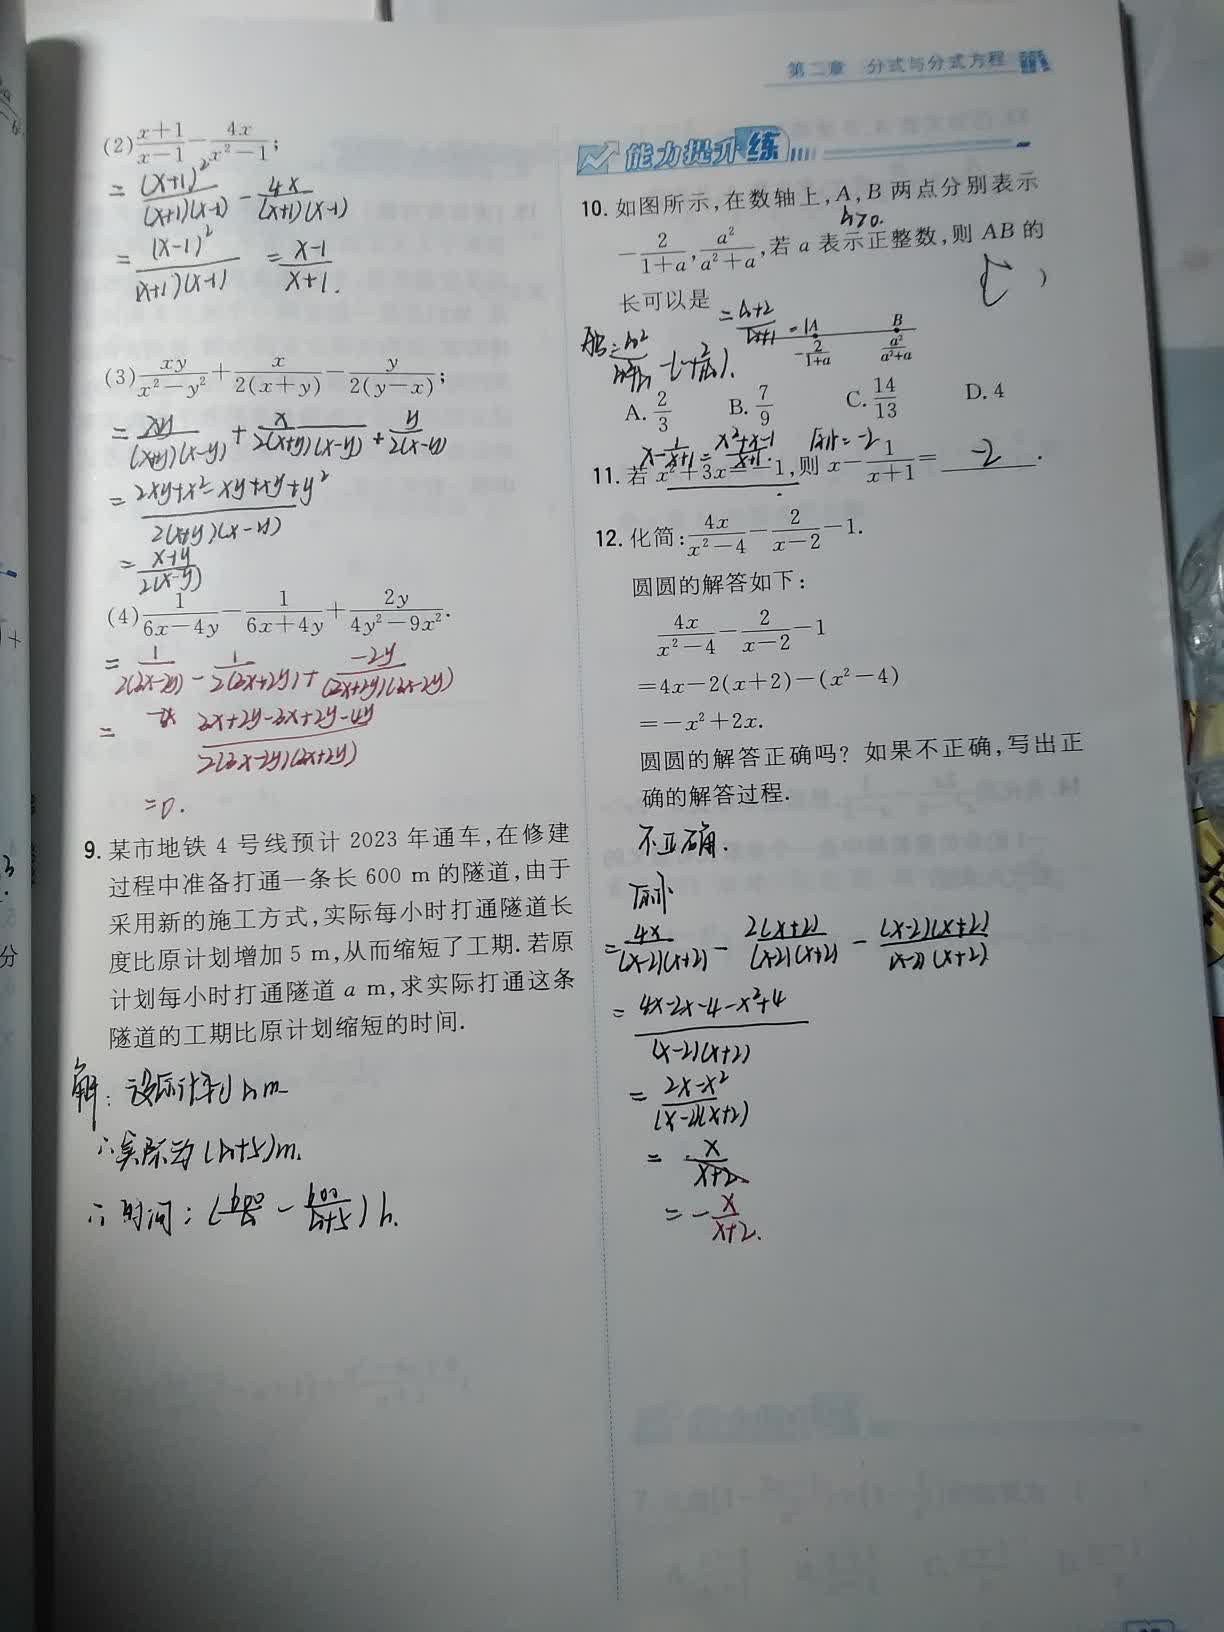 第二章 分式与分式方程
(2) \frac{x+1}{x-1} - \frac{4x}{x^2-1};
= \frac{(x+1)^2}{(x+1)(x-1)} - \frac{4x}{(x+1)(x-1)}
= \frac{(x-1)^2}{(x+1)(x-1)} = \frac{x-1}{x+1}.
(3) \frac{xy}{x^2-y^2} + \frac{x}{2(x+y)} - \frac{y}{2(y-x)};
= \frac{xy}{(x+y)(x-y)} + \frac{x}{2(x+y)(x-y)} + \frac{y}{2(x-y)}
= \frac{2xy+x^2-xy+xy+y^2}{2(x+y)(x-y)}
= \frac{x+y}{2(x-y)}
(4) \frac{1}{6x-4y} - \frac{1}{6x+4y} + \frac{2y}{4y^2-9x^2}.
= \frac{1}{2(3x-2y)} - \frac{1}{2(3x+2y)} + \frac{-2y}{(3x+2y)(3x-2y)}
= \frac{3x+2y-3x+2y-4y}{2(3x-2y)(3x+2y)}
=0.
9. 某市地铁 4 号线预计 2023 年通车,在修建
过程中准备打通一条长 600 m 的隧道,由于
采用新的施工方式,实际每小时打通隧道长
度比原计划增加 5 m,从而缩短了工期. 若原
计划每小时打通隧道 a m,求实际打通这条
隧道的工期比原计划缩短的时间.
解: 设原计划 a m
∴实际为 (a+5)m.
∴时间: (\frac{600}{a} - \frac{600}{a+5}) h.
能力提升练
10. 如图所示,在数轴上,A,B 两点分别表示
a>0.
-\frac{2}{1+a}, \frac{a^2}{a^2+a},若 a 表示正整数,则 AB 的
长可以是 ( C )
AB= \frac{a^2}{a^2+a} - (-\frac{2}{1+a}). = \frac{a+2}{a+1} =1
A B
-\frac{2}{1+a} \frac{a^2}{a^2+a}
A. \frac{2}{3} B. \frac{7}{9} C. \frac{14}{13} D. 4
x-\frac{1}{x+1} = \frac{x^2+x-1}{x+1}. 原式=-2
11. 若 x^2+3x=-1,则 x-\frac{1}{x+1}= -2 .
12. 化简: \frac{4x}{x^2-4} - \frac{2}{x-2} - 1.
圆圆的解答如下:
\frac{4x}{x^2-4} - \frac{2}{x-2} - 1
=4x-2(x+2)-(x^2-4)
=-x^2+2x.
圆圆的解答正确吗? 如果不正确,写出正
确的解答过程.
不正确.
原式
= \frac{4x}{(x-2)(x+2)} - \frac{2(x+2)}{(x-2)(x+2)} - \frac{(x-2)(x+2)}{(x-2)(x+2)}
= \frac{4x-2x-4-x^2+4}{(x-2)(x+2)}
= \frac{2x-x^2}{(x-2)(x+2)}
= \frac{x}{x+2}
= -\frac{x}{x+2}.